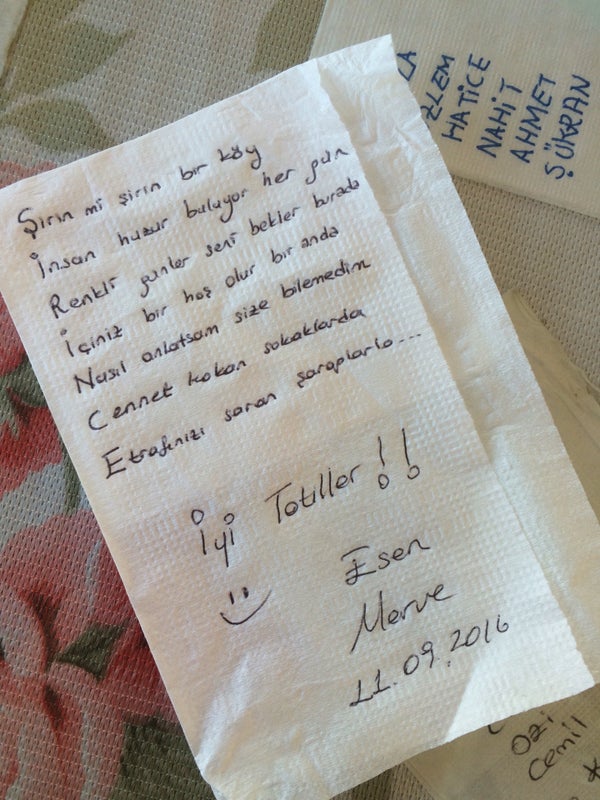 Şirin mi şirin bir köy
İnsan huzur buluyor her gün
Renkli günler seni bekler burada
İçiniz bir hoş olur bir anda
Nasıl anlatsam size bilemedim
Cennet kokan sokaklarda
Etrafınızı saran şaraplarla...
İyi Tatiller !!
Esen
Merve
11.09.2016
HATİCE
NAHİT
AHMET
ŞÜKRAN
Cemil